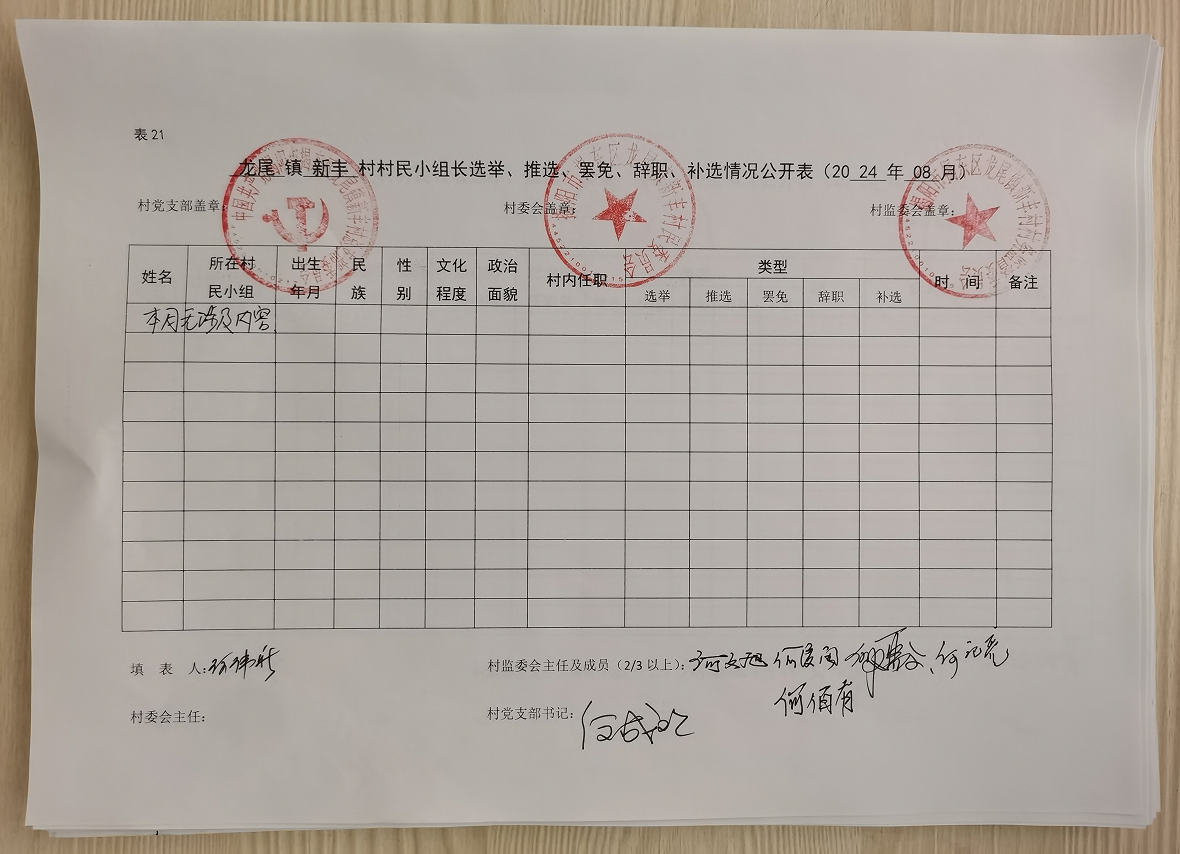 表 21
龙尾 镇 新丰 村村民小组长选举、推选、罢免、辞职、补选情况公开表（20 24 年 08 月）
村党支部盖章： 村委会盖章： 村监委会盖章：
姓名 所在村民小组 出生年月 民族 性别 文化程度 政治面貌 村内任职 类型 时 间 备注
选举 推选 罢免 辞职 补选
本月无涉及内容
填 表 人：
村监委会主任及成员（2/3 以上）：
何佰有
村委会主任： 村党支部书记：